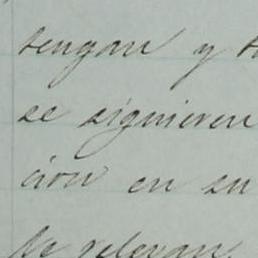 tengan y
se siguieren
cion en su
le relevan